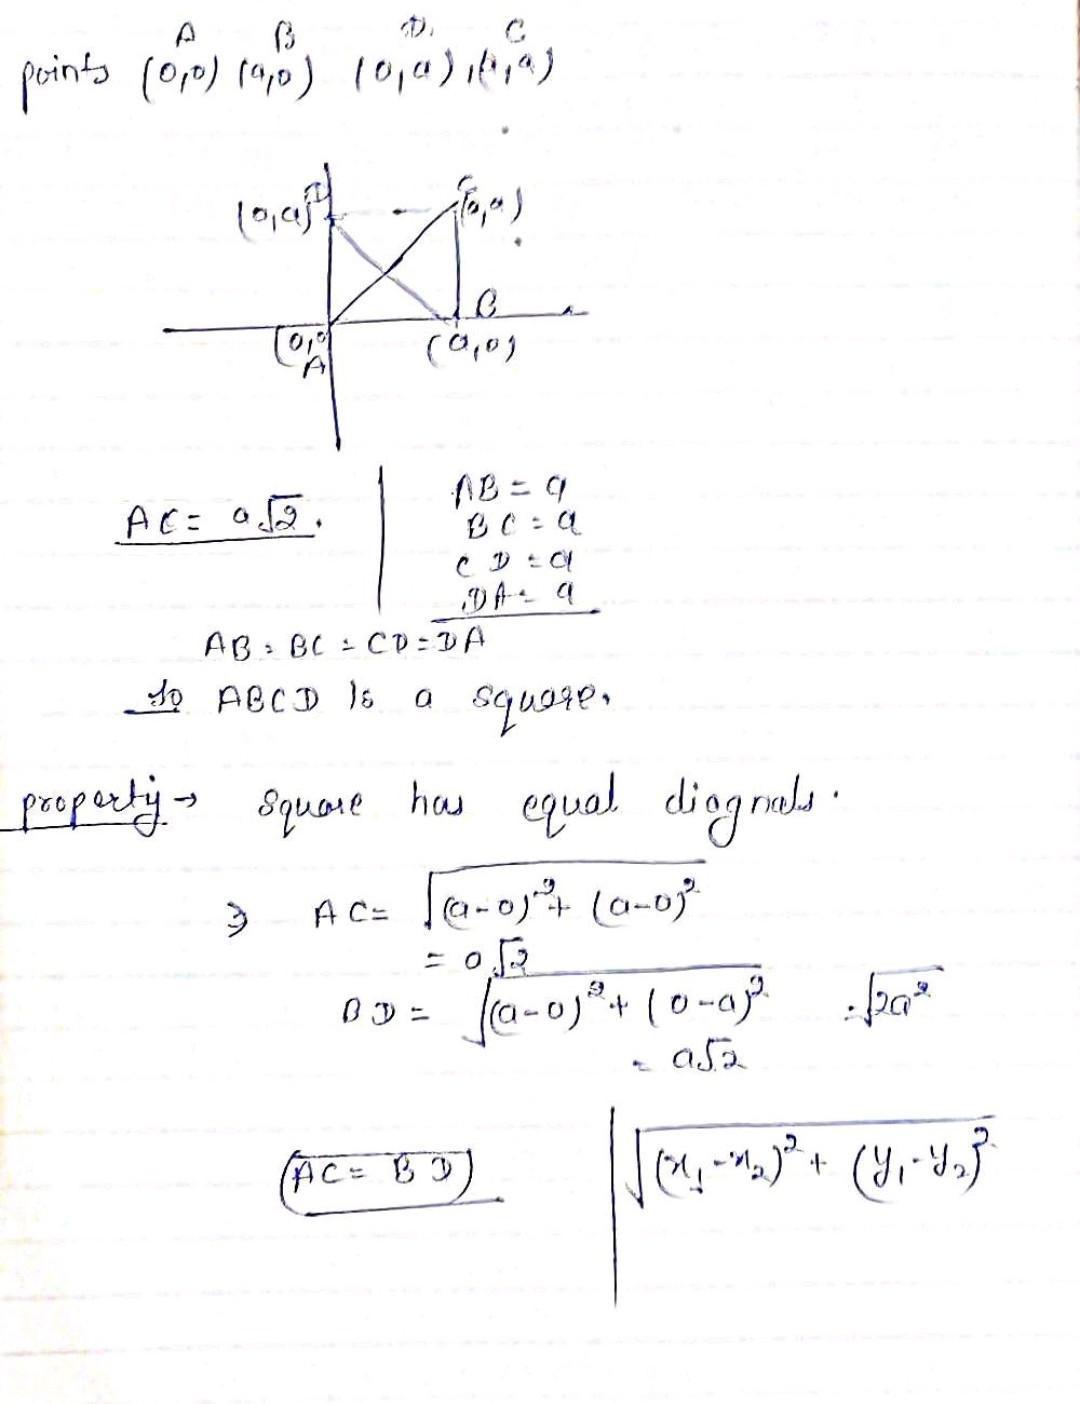 A B D. C
points (0,0) (a,0) (0,a), (a,a)
D C
(0,a) (a,a)
B
(0,0 (a,0)
A
AC = a√2.
AB = a
BC = a
CD = a
DA = a
AB = BC = CD = DA
So ABCD is a square.
property → square has equal diagnals.
⇒ AC = √(a-0)² + (a-0)²
= a√2
BD = √(a-0)² + (0-a)² = √2a²
= a√2
AC = BD
√(x₁-x₂)² + (y₁-y₂)²